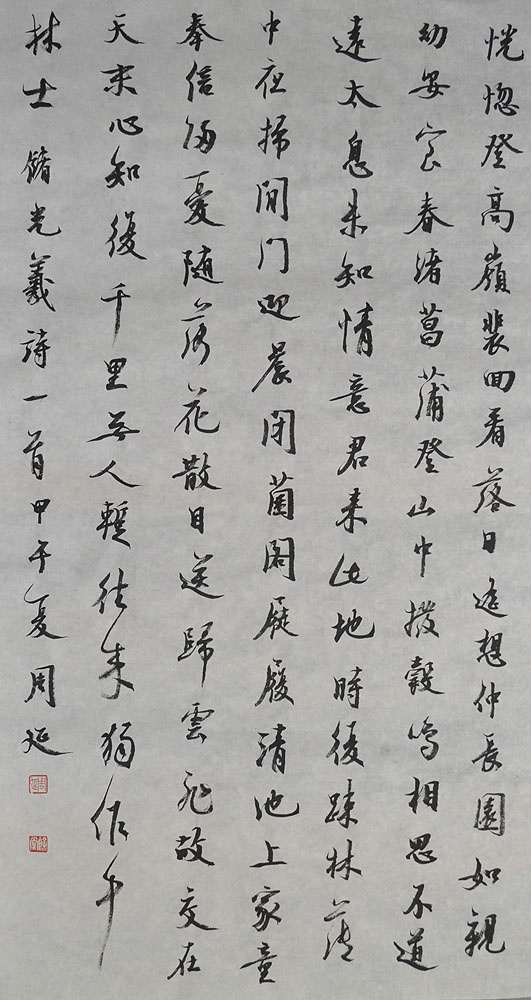 恍惚登高嶺裴回看落日遙想仲長園如親
幼安室春渚菖蒲登山中撥穀鳴相思不道
遠太息未知情意君来此地時復疎林薄
中夜掃閒門迎晨閉菌閣屣履清池上家童
奉信歸憂随落花散目送歸雲飛故交在
天末心知復千里無人暫往来獨作中
林士 儲光羲詩一首甲午夏周延